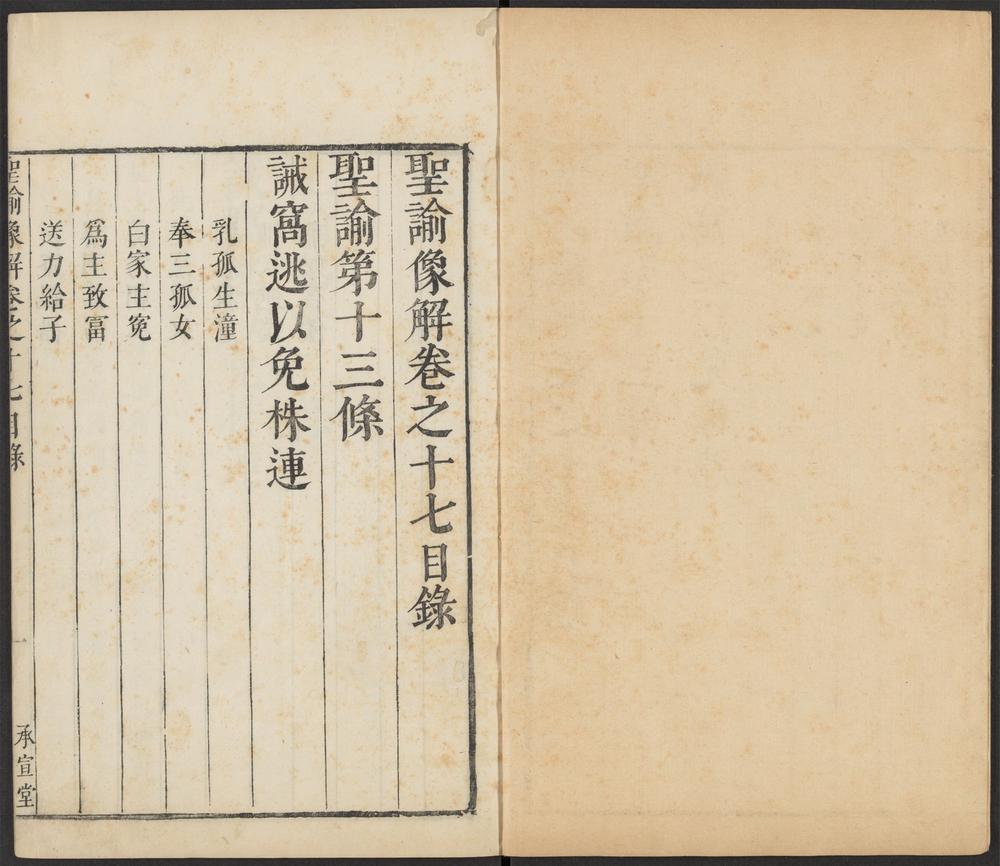 聖諭像解卷之十七目錄
聖諭第十三條
誡窩逃以免株連
乳孤生湩
奉三孤女
白家主冤
爲主致富
送力給子
聖諭像解卷之十七目錄
一
承宣堂